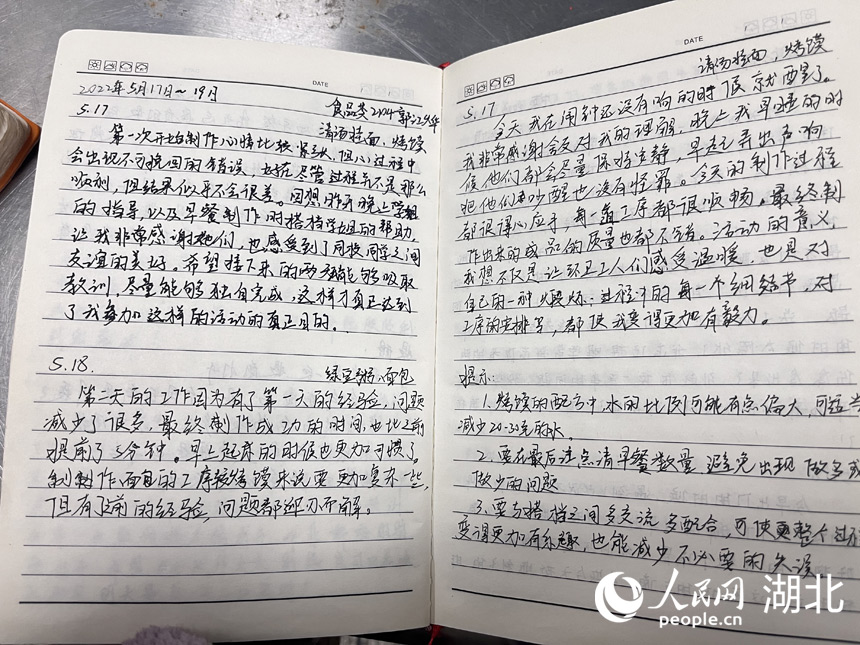 DATE
2022年5月17日~19日
5.17 食品类2104郭
清汤挂面、烤馍
第一次开始制作心情比较紧张,担心过程中
会出现不可挽回的错误,好在尽管过程并不是那么
顺利,但结果似乎不会很差。回想昨天晚上学姐
的指导,以及早餐制作时搭档学姐的帮助,
让我非常感谢她们,也感受到了同校同学之间
友谊的美好。希望接下来的两天能够吸取
教训,尽量能够独自完成,这样才真正达到
了我参加这样的活动的真正目的.
5.18. 绿豆粥、面包
第二天的工作因为有了第一天的经验,问题
减少了很多,最终制作成功的时间,也比之前
提前了5分钟。早上起床的时候也更加习惯了
制作面包的工序较烤馍来说要更加复杂一些,
但有了前的经验,问题都迎刃而解。
DATE
清汤挂面,烤馍
5.17
今天我在闹钟还没有响的时候就醒了。
我非常感谢舍友对我的理解,晚上我早睡的时
候他们都会尽量保持安静,早起弄出声响
把他们吵醒也没有怪罪。今天的制作过程
都很得心应手,每一道工序都很顺畅。最终制
作出来的成品的质量也都不错。活动的意义,
我想不仅是让环卫工人们感受温暖,也是对
自己的一种锻炼:过程中的每一个细节,对
工序的安排等,都使我变得更加有毅力。
提示:
1.烤馍的配方中,水的比例可能有点偏大,可适当
减少20-30克的水.
2.要在最后清点清早餐数量 避免出现做多或
做少的问题
3.要与搭档之间多交流多配合,可使更整个过程
变得更加有乐趣,也能减少不必要的失误
人民网 湖北
people.cn